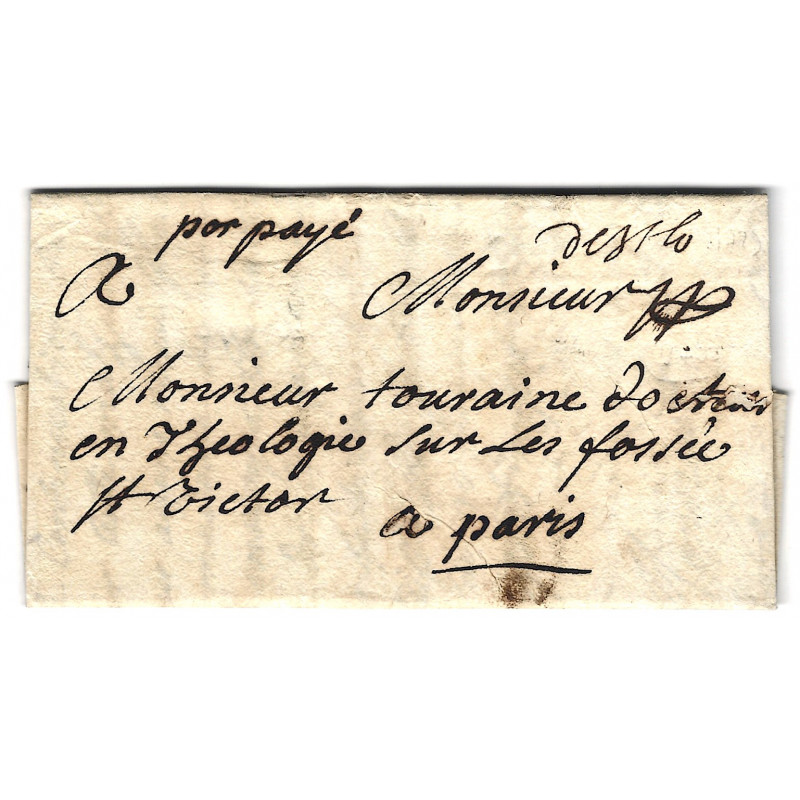 por payé
de St lo
A Monsieur
Monsieur touraine docteur
en Theologie sur Les fossée
St Victor
a paris